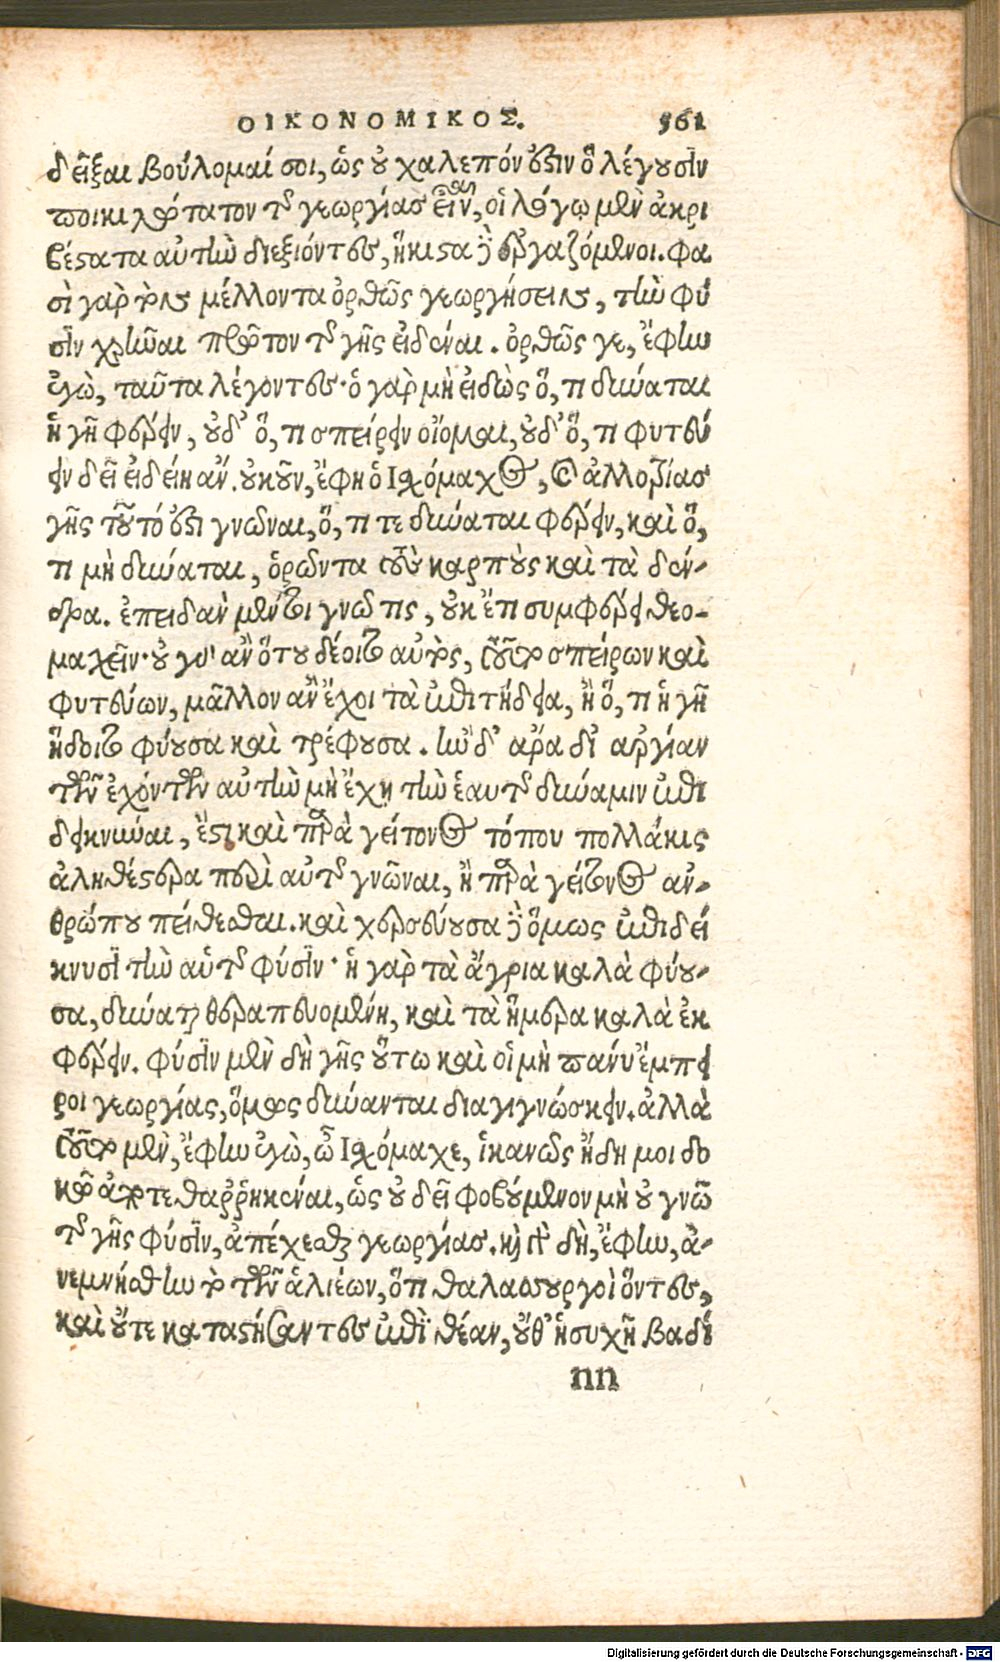 ΟΙΚΟΝΟΜΙΚΟΣ. 561
δεῖξαι βούλομαί σοι, ὡς οὐ χαλεπόν ἐστιν ὃ λέγουσιν
ποικιλώτατον τῆς γεωργίας εἶναι, οἱ λόγῳ μὲν ἀκρι
βέστατα αὐτὴν διεξιόντες, ἥκιστα δὲ ἐργαζόμενοι. φα
σὶ γὰρ τὸν μέλλοντα ὀρθῶς γεωργήσειν, τὴν φύ
σιν χρῆναι πρῶτον τῆς γῆς εἰδέναι. ὀρθῶς γε, ἔφην
ἐγὼ, ταῦτα λέγοντες· ὁ γὰρ μὴ εἰδὼς ὅ, τι δύναται
ἡ γῆ φέρειν, οὐδ' ὅ, τι σπείρειν οἴομαι, οὐδ' ὅ, τι φυτεύ
ειν δεῖ εἰδείη ἄν. οὐκοῦν, ἔφη ὁ Ἰσχόμαχος, καὶ ἀλλοτρίας
γῆς τοῦτό ἐστι γνῶναι, ὅ, τι τε δύναται φέρειν, καὶ ὅ,
τι μὴ δύναται, ὁρῶντα τοὺς καρποὺς καὶ τὰ δέν-
δρα. ἐπειδὰν μέντοι γνῶ τις, οὐκ ἔτι συμφέρει θεο-
μαχεῖν· οὐ γὰρ ἂν ὅτου δέοιτο αὐτὸς, τοῦτο σπείρων καὶ
φυτεύων, μᾶλλον ἂν ἔχοι τὰ ἐπιτήδεια, ἢ ὅ, τι ἡ γῆ
ἥδοιτο φύουσα καὶ τρέφουσα. ἢν δ' ἄρα δι' ἀργίαν
τῶν ἐχόντων αὐτὴν μὴ ἔχῃ τὴν ἑαυτῆς δύναμιν ἐπι
δεικνύναι, ἔστι καὶ παρὰ γείτονος τόπου πολλάκις
ἀληθέστερα περὶ αὐτῆς γνῶναι, ἢ παρὰ γείτονος ἀν-
θρώπου πείθεσθαι. καὶ χερσεύουσα δὲ ὅμως ἐπιδεί
κνυσι τὴν αὑτῆς φύσιν· ἡ γὰρ τὰ ἄγρια καλὰ φύου-
σα, δύναται θεραπευομένη, καὶ τὰ ἥμερα καλὰ ἐκ
φέρειν. φύσιν μὲν δὴ γῆς οὕτω καὶ οἱ μὴ πάνυ ἔμπει
ροι γεωργίας, ὅμως δύνανται διαγιγνώσκειν. ἀλλὰ
τοῦτο μὲν, ἔφην ἐγὼ, ὦ Ἰσχόμαχε, ἱκανῶς ἤδη μοι δο
κῶ ἀποτεθαῤῥηκέναι, ὡς οὐ δεῖ φοβούμενον μὴ οὐ γνῶ
τῆς γῆς φύσιν, ἀπέχεσθαι γεωργίας. καὶ γὰρ δὴ, ἔφην, ἀ-
νεμνήσθην τὸ τῶν ἁλιέων, ὅτι θαλασσουργοὶ ὄντες,
καὶ οὔτε καταστήσαντες ἐπὶ θέαν, οὔθ' ἡσυχῆ βαδί
nn
Digitalisierung gefördert durch die Deutsche Forschungsgemeinschaft - DFG